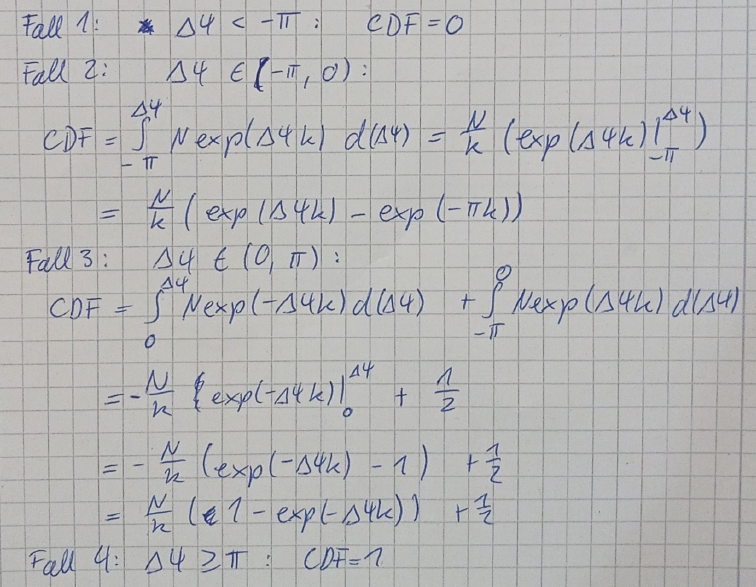 Fall 1: Δφ < -π : CDF = 0
Fall 2: Δφ ∈ (-π, 0) :
CDF = ∫_{-π}^{Δφ} N exp(Δφk) d(Δφ) = N/k (exp(Δφk)|_{-π}^{Δφ})
= N/k (exp(Δφk) - exp(-πk))
Fall 3: Δφ ∈ (0, π) :
CDF = ∫_0^{Δφ} N exp(-Δφk) d(Δφ) + ∫_{-π}^0 N exp(Δφk) d(Δφ)
= - N/k exp(-Δφk)|_0^{Δφ} + 1/2
= - N/k (exp(-Δφk) - 1) + 1/2
= N/k (1 - exp(-Δφk)) + 1/2
Fall 4: Δφ ≥ π : CDF = 1